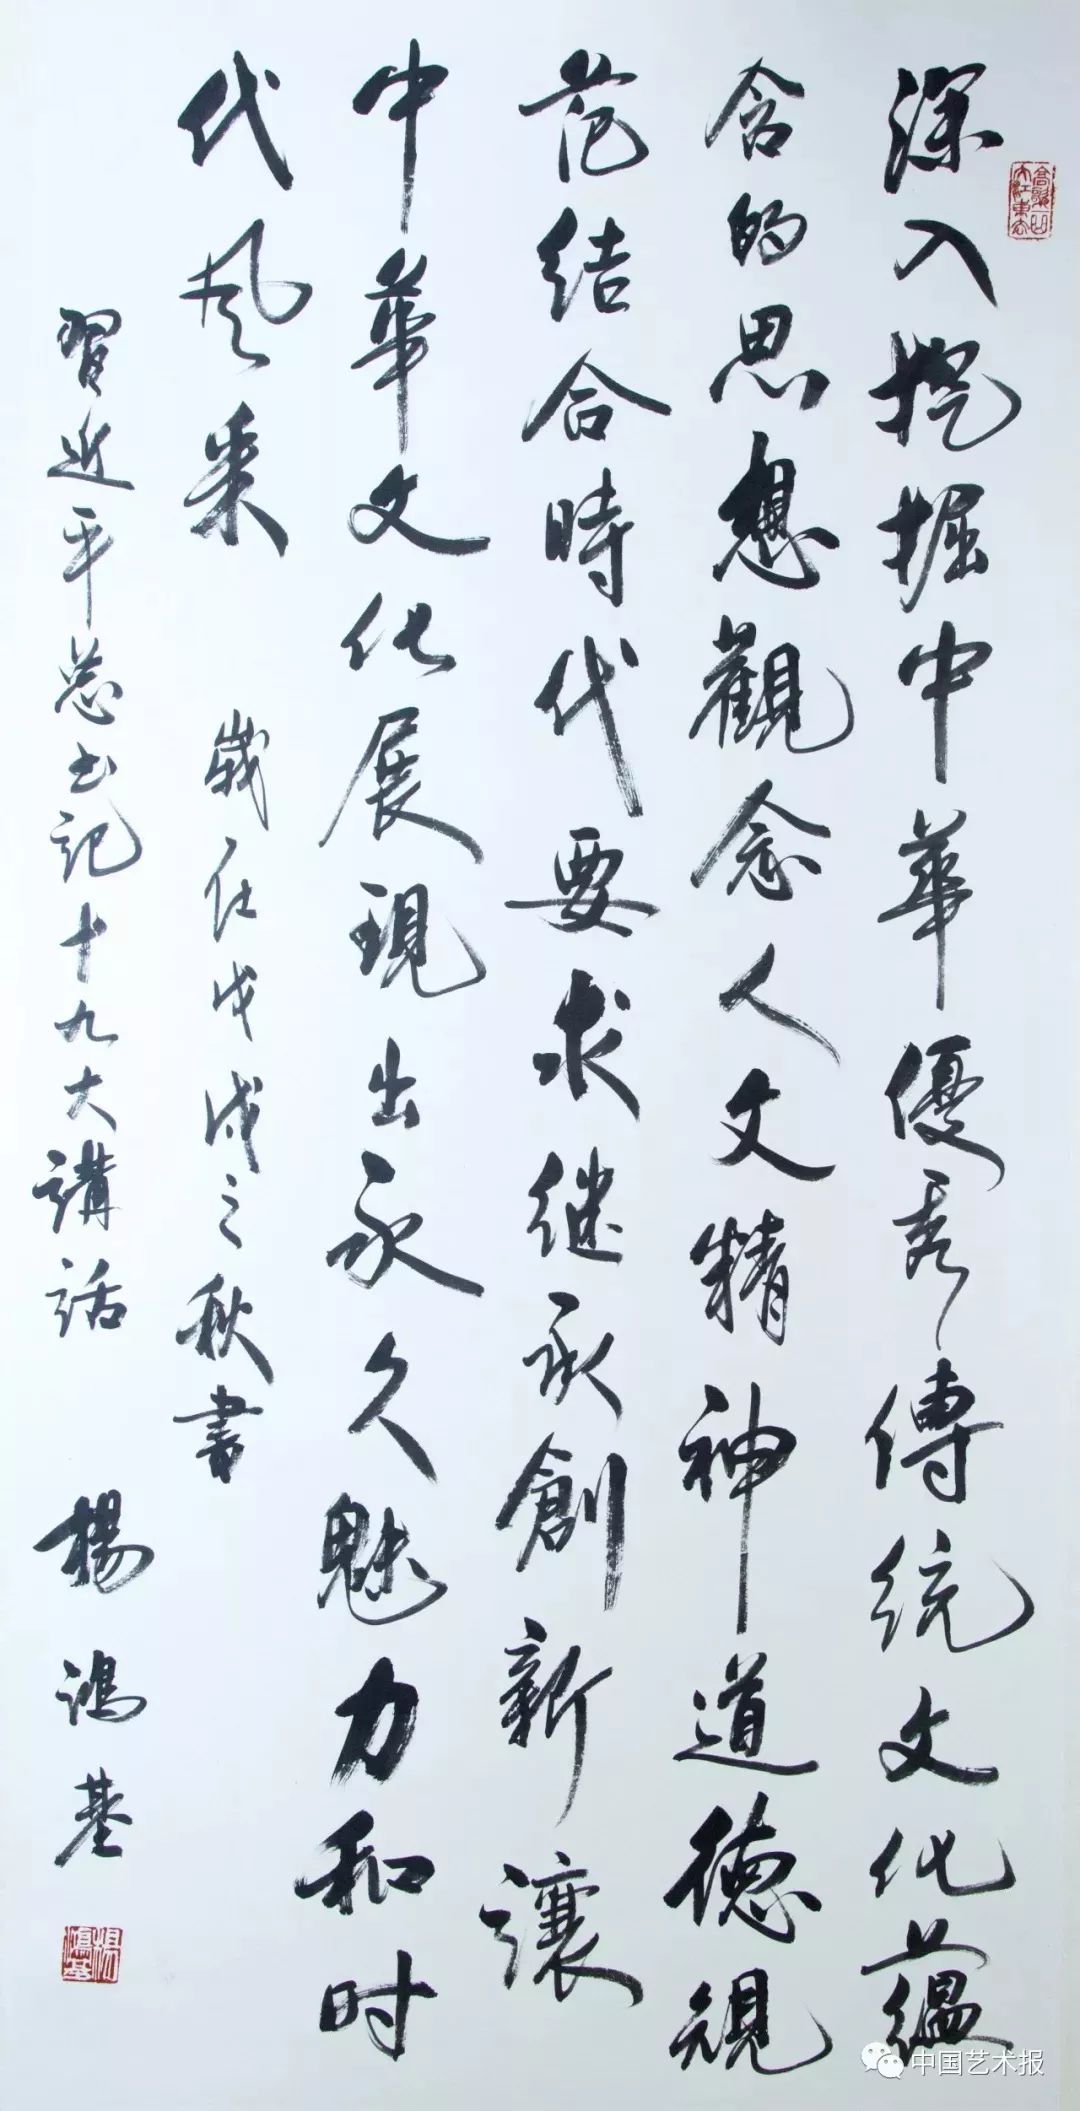 深入挖掘中華優秀傳統文化蘊
含的思想觀念人文精神道德規
范结合時代要求继承創新讓
中華文化展現出永久魅力和时
代风采
歲在戊戌之秋書
習近平总书記十九大講話
楊鴻基
楊鴻基
中国艺术报